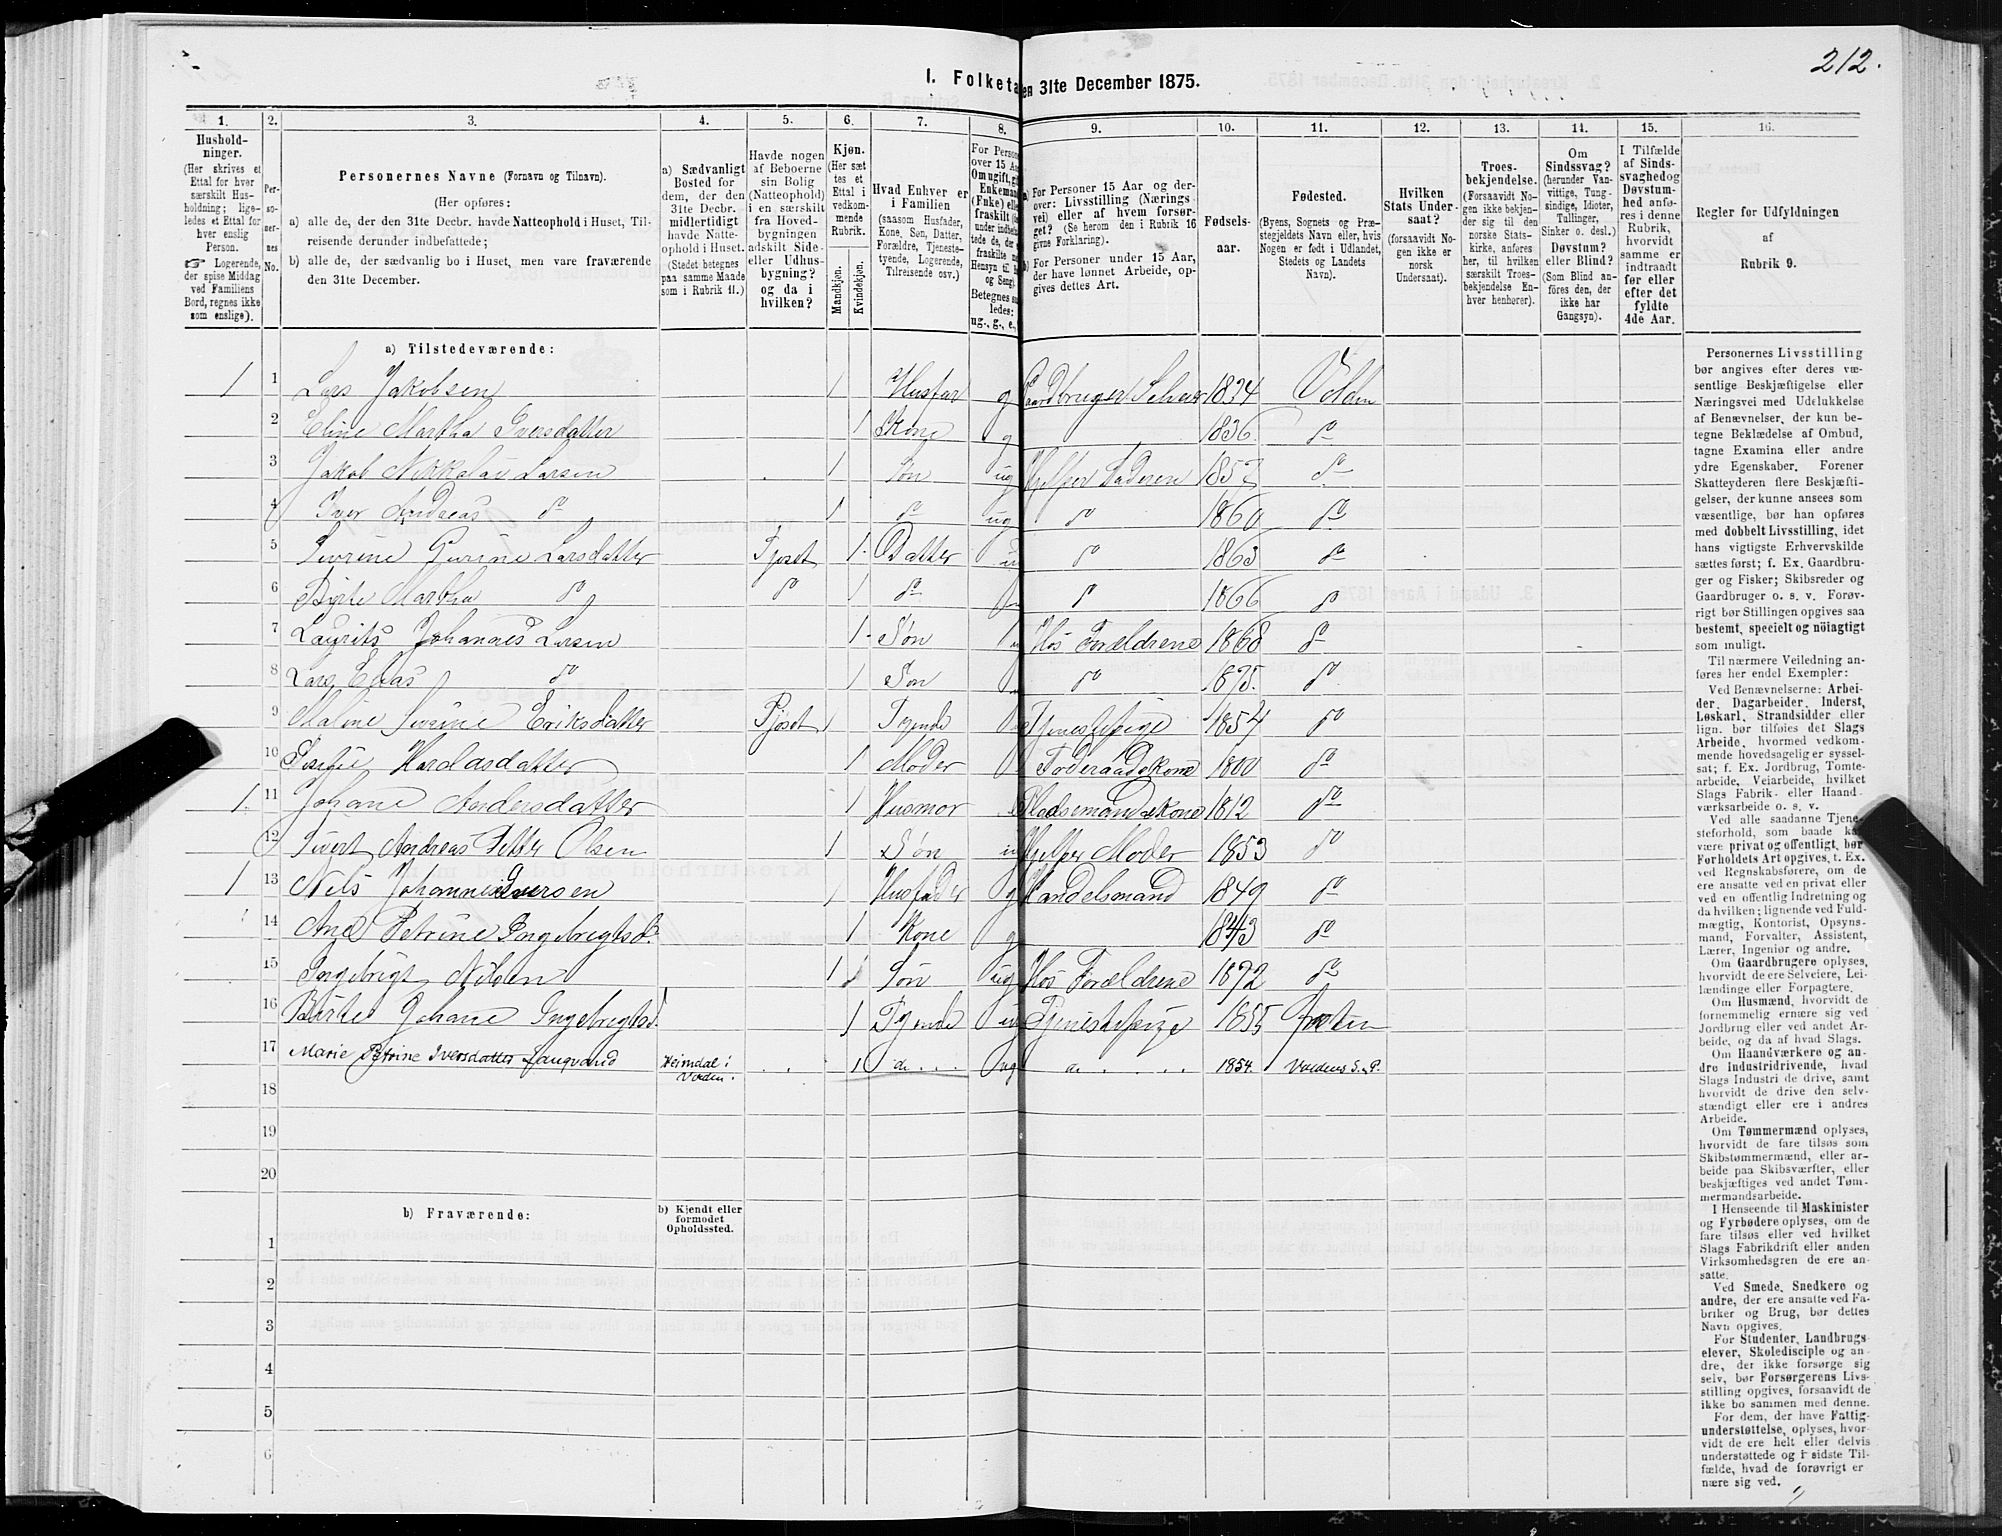 212.
I. Folketa en 31te December 1875.
1. 2. 3. 4. 5. 6. 7. 8. 9. 10. 11. 12. 13. 14. 15. 16.
Hushold-
ninger.
(Her skrives et
Ettal for hver
særskilt Hus-
holdning; lige-
ledes et Ettal for
hver enslig
Person.
☞ Logerende,
der spise Middag
ved Familiens
Bord, regnes ikke
som enslige).
Per-
so-
ner-
nes
No.
Personernes Navne (Fornavn og Tilnavn).
(Her opføres:
a) alle de, der den 31te Decbr. havde Natteophold i Huset, Til-
reisende derunder indbefattede;
b) alle de, der sædvanlig bo i Huset, men vare fraværende
den 31te December.
a) Sædvanligt
Bosted for
dem, der den
31te Decbr.
midlertidigt
havde Natte-
ophold i Huset.
(Stedet betegnes
paa samme Maade
som i Rubrik 11.)
Havde nogen
af Beboerne
sin Bolig
(Natteophold)
i en særskilt
fra Hoved-
bygningen
adskilt Side-
eller Udhus-
bygning?
og da i
hvilken?
Kjøn.
(Her sæt-
tes et
Ettal i
vedkom-
mende
Rubrik.
Mandkjøn.
Kvindekjøn.
Hvad Enhver er
i Familien
(saasom Husfader,
Kone, Søn, Datter,
Forældre, Tjeneste-
tyende, Logerende,
Tilreisende osv.)
For Person
over 15 Aa
Om ugift, gif
Enkeman
(Enke) elle
fraskilt (he
under indbe
tede de, der
fraskilte
Hensyn til
og Seng).
Betegnes s
ledes:
ug., g., e.,
a) For Personer 15 Aar og der-
over: Livsstilling (Nærings
vei) eller af hvem forsør-
get? (Se herom den i Rubrik 16
givne Forklaring).
b) For Personer under 15 Aar,
der have lønnet Arbeide, op-
gives dettes Art.
Fødsels-
aar.
Fødested.
(Byens, Sognets og Præ-
stegjeldets Navn eller, hvis
Nogen er født i Udlandet,
Stedets og Landets
Navn).
Hvilken
Stats Under-
saat?
(forsaavidt No-
gen ikke er
norsk
Undersaat).
Troes-
bekjendelse.
(Forsaavidt No-
gen ikke bekjen-
der sig til den
norske Stats-
kirke, anføres
her, til hvilken
særskilt Troes-
bekjendelse En-
hver henhører).
Om
Sindssvag?
(herunder Van-
vittige, Tung-
sindige, Idioter,
Tullinger,
Sinker o. desl.)
Døvstum?
eller Blind?
(Som Blind an-
føres den, der
ikke har
Gangsyn).
I Tilfælde
af Sinds-
svaghed og
Døvstum-
hed anfø-
res i denne
Rubrik,
hvorvidt
samme er
indtraadt
før eller
efter det
fyldte
4de Aar.
Regler for Udfyldningen
af
Rubrik 9.
a) Tilstedeværende:
1 1 Lars Jakobsen 1 Husfar g Gaardbruger Selveier 1834 Volden
2 Eline Martha Iversdatter 1 Kone g 1836 do
3 Jakob Nikkolai Larsen 1 Søn ug Hjelper Faderen 1857 do
4 Iver Andreas do 1 do ug do 1860 do
5 Sivrine Larsdatter Fjøset 1 Datter u do 1863 do
6 Birte Martha do do 1 do do 1866 do
7 Laurits Johannes Larsen 1 Søn Hos Forældrene 1868 do
8 Lars Elias do 1 Søn do 1875. do
9 Maline Sivrine Eriksdatter Fjøset 1 Tyende Tjenestepige 1854 do
10 datter 1 Moder Føderaadskone 1800 do
1 11 Johane Andersdatter 1 Husmor Pladsemandskone 1812 do
12 Sivert Andreas Petter Olsen 1 Søn u Hjelper Moder 1853 do
1 13 Nils Johannes Iversen 1 Husfader g Handelsmand 1849 do
14 Ane Petrine Ingebregtsd. 1 Kone g 1843 do
15 Ingebrigt Nilsen 1 Søn ug Hos Forældrene 1872 do
16 Birte Johane Ingebregtsd. 1 Tyende ug Tjenestepige 1855
17 Marie Petrine Iversdatter Heimdal i 1 do . . . ug do . . . . 1854. Voldens S. & P.
Volden.
18
19
20
b) Fraværende:
b) Kjendt eller
formodet
Opholdssted.
1
2
3
4
5
6
Personernes Livsstilling
bør angives efter deres væ-
sentlige Beskjæftigelse eller
Næringsvei med Udelukkelse
af Benævnelser, der kun be-
tegne Beklædelse af Ombud,
tagne Examina eller andre
ydre Egenskaber. Forener
Skatteyderen flere Beskjæfti-
gelser, der kunne ansees som
væsentlige, bør han opføres
med dobbelt Livsstilling, idet
hans vigtigste Erhvervskilde
sættes først; f. Ex. Gaardbru-
ger og Fisker; Skibsreder og
Gaardbruger o. s. v. Forøv-
rigt bør Stillingen opgives saa
bestemt, specielt og nöiagtigt
som muligt.
Til nærmere Veiledning an-
føres her endel Exempler:
Ved Benævnelserne: Arbei-
der, Dagarbeider, Inderst,
Løskarl, Strandsidder eller
lign. bør tilføies det Slags
Arbeide, hvormed vedkom-
mende hovedsagelig er syssel-
sat; f. Ex. Jordbrug, Tomte-
arbeide, Veiarbeide, hvilket
Slags Fabrik- eller Haand-
værksarbeide o. s. v.
Ved alle saadanne Tjene-
steforhold, som baade ka
være privat og offentligt, bør
Forholdets Art opgives, t. Ex.
ved Regnskabsførere, om de
ere ansatte ved en privat eller
ved en offentlig Indretning og
da hvilken; lignende ved Fuld-
mægtig, Kontorist, Opsyns-
mand, Forvalter, Assistent,
Lærer, Ingeniør og andre.
Om Gaardbrugere oplyses,
hvorvidt de ere Selveiere, Lei-
lændinge eller Forpagtere.
Om Husmænd, hvorvidt de
fornemmelig ernære sig ved
Jordbrug eller ved andet Ar-
beide, og da af hvad Slags.
Om Haandværkere og an-
dre Industridrivende, hvad
Slags Industri de drive, samt
hvorvidt de drive den selv-
stændigt eller ere i andres
Arbeide.
Om Tømmermænd oplyses,
hvorvidt de fare tilsøs som
Skibstømmermænd, eller ar-
beide paa Skibsværfter, eller
beskjæftiges ved andet Tøm-
mermandsarbeide.
I Henseende til Maskinister
og Fyrbødere oplyses, om de
fare tilsøs eller ved hvilket
Slags Fabrikdrift eller anden
Virksomhedsgren de ere an-
satte.
Ved Smede, Snedkere og
andre, der ere ansatte ved Fa-
briker og Brug, bør dettes
Navn opgives.
For Studenter, Landbrugs-
elever, Skoledisciple og an-
dre, der ikke forsørge sig
selv, bør Forsørgerens Livs-
stilling opgives, forsaavidt de
ikke bo sammen med denne.
For dem, der have Fattig-
understøttelse, oplyses, hvor-
vidt de ere helt eller delvis
understøttede og i sidste Til-
fælde, hvad de forøvrigt er
nære sig ved.